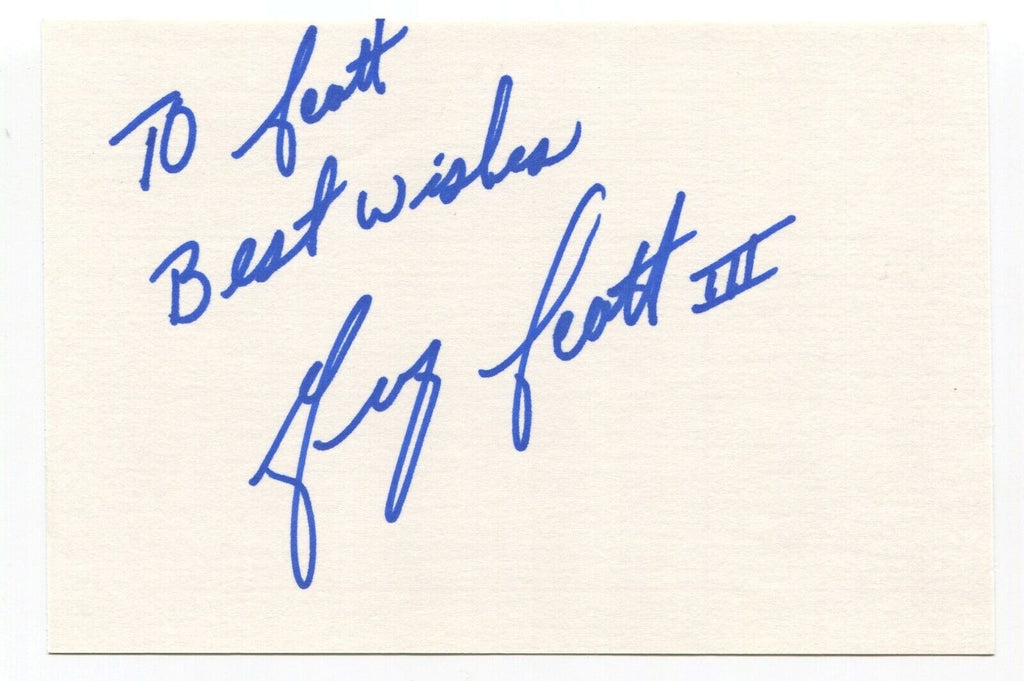 TO Scott
Best wishes
Guy Scott III